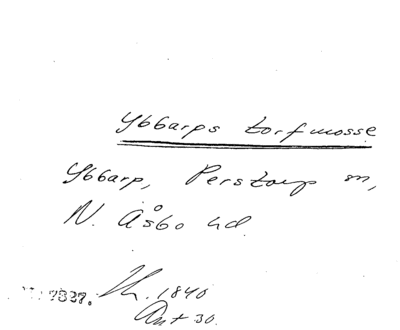 Ybbarps torfmosse
Ybbarp, Perstorp sn,
N. Åsbo hd
7327. Th. 1840
Ant 30.